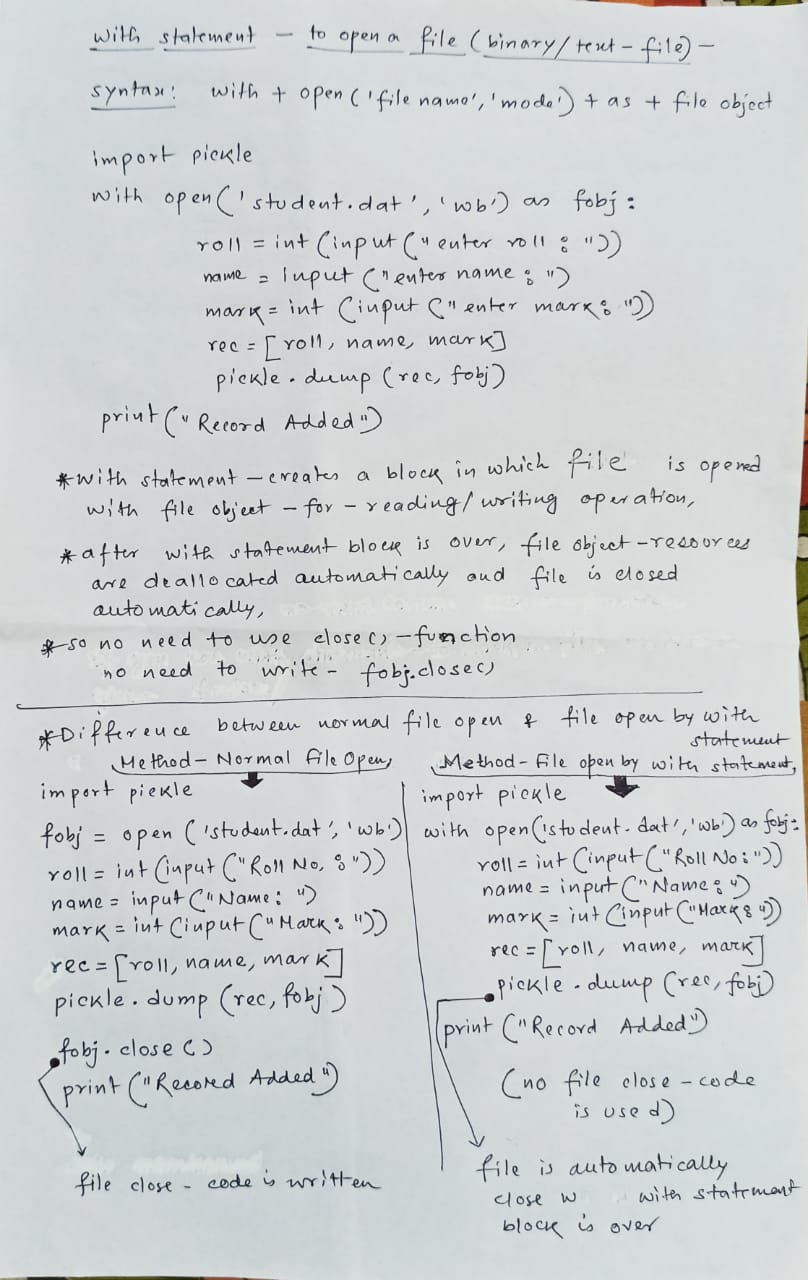 with statement – to open a file (binary/text-file) –
syntax: with + open('file name','mode') + as + file object
import pickle
with open('student.dat','wb') as fobj:
roll = int(input("enter roll: "))
name = input("enter name: ")
mark = int(input("enter mark: "))
rec = [roll, name, mark]
pickle.dump(rec, fobj)
print("Record Added")
*with statement – creates a block in which file is opened
with file object – for – reading/writing operation,
*after with statement block is over, file object – resources
are deallocated automatically and file is closed
automatically,
*so no need to use close() – function
no need to write – fobj.close()
*Difference between normal file open & file open by with
statement
Method – Normal File Open,
import pickle
fobj = open('student.dat','wb')
roll = int(input("Roll No, : "))
name = input("Name: ")
mark = int(input("Mark: "))
rec = [roll, name, mark]
pickle.dump(rec, fobj)
fobj.close()
print("Record Added")
file close – code is written
Method – File open by with statement,
import pickle
with open('student.dat','wb') as fobj:
roll = int(input("Roll No: "))
name = input("Name: ")
mark = int(input("Mark: "))
rec = [roll, name, mark]
pickle.dump(rec, fobj)
print("Record Added")
(no file close – code
is used)
file is automatically
close w with statement
block is over